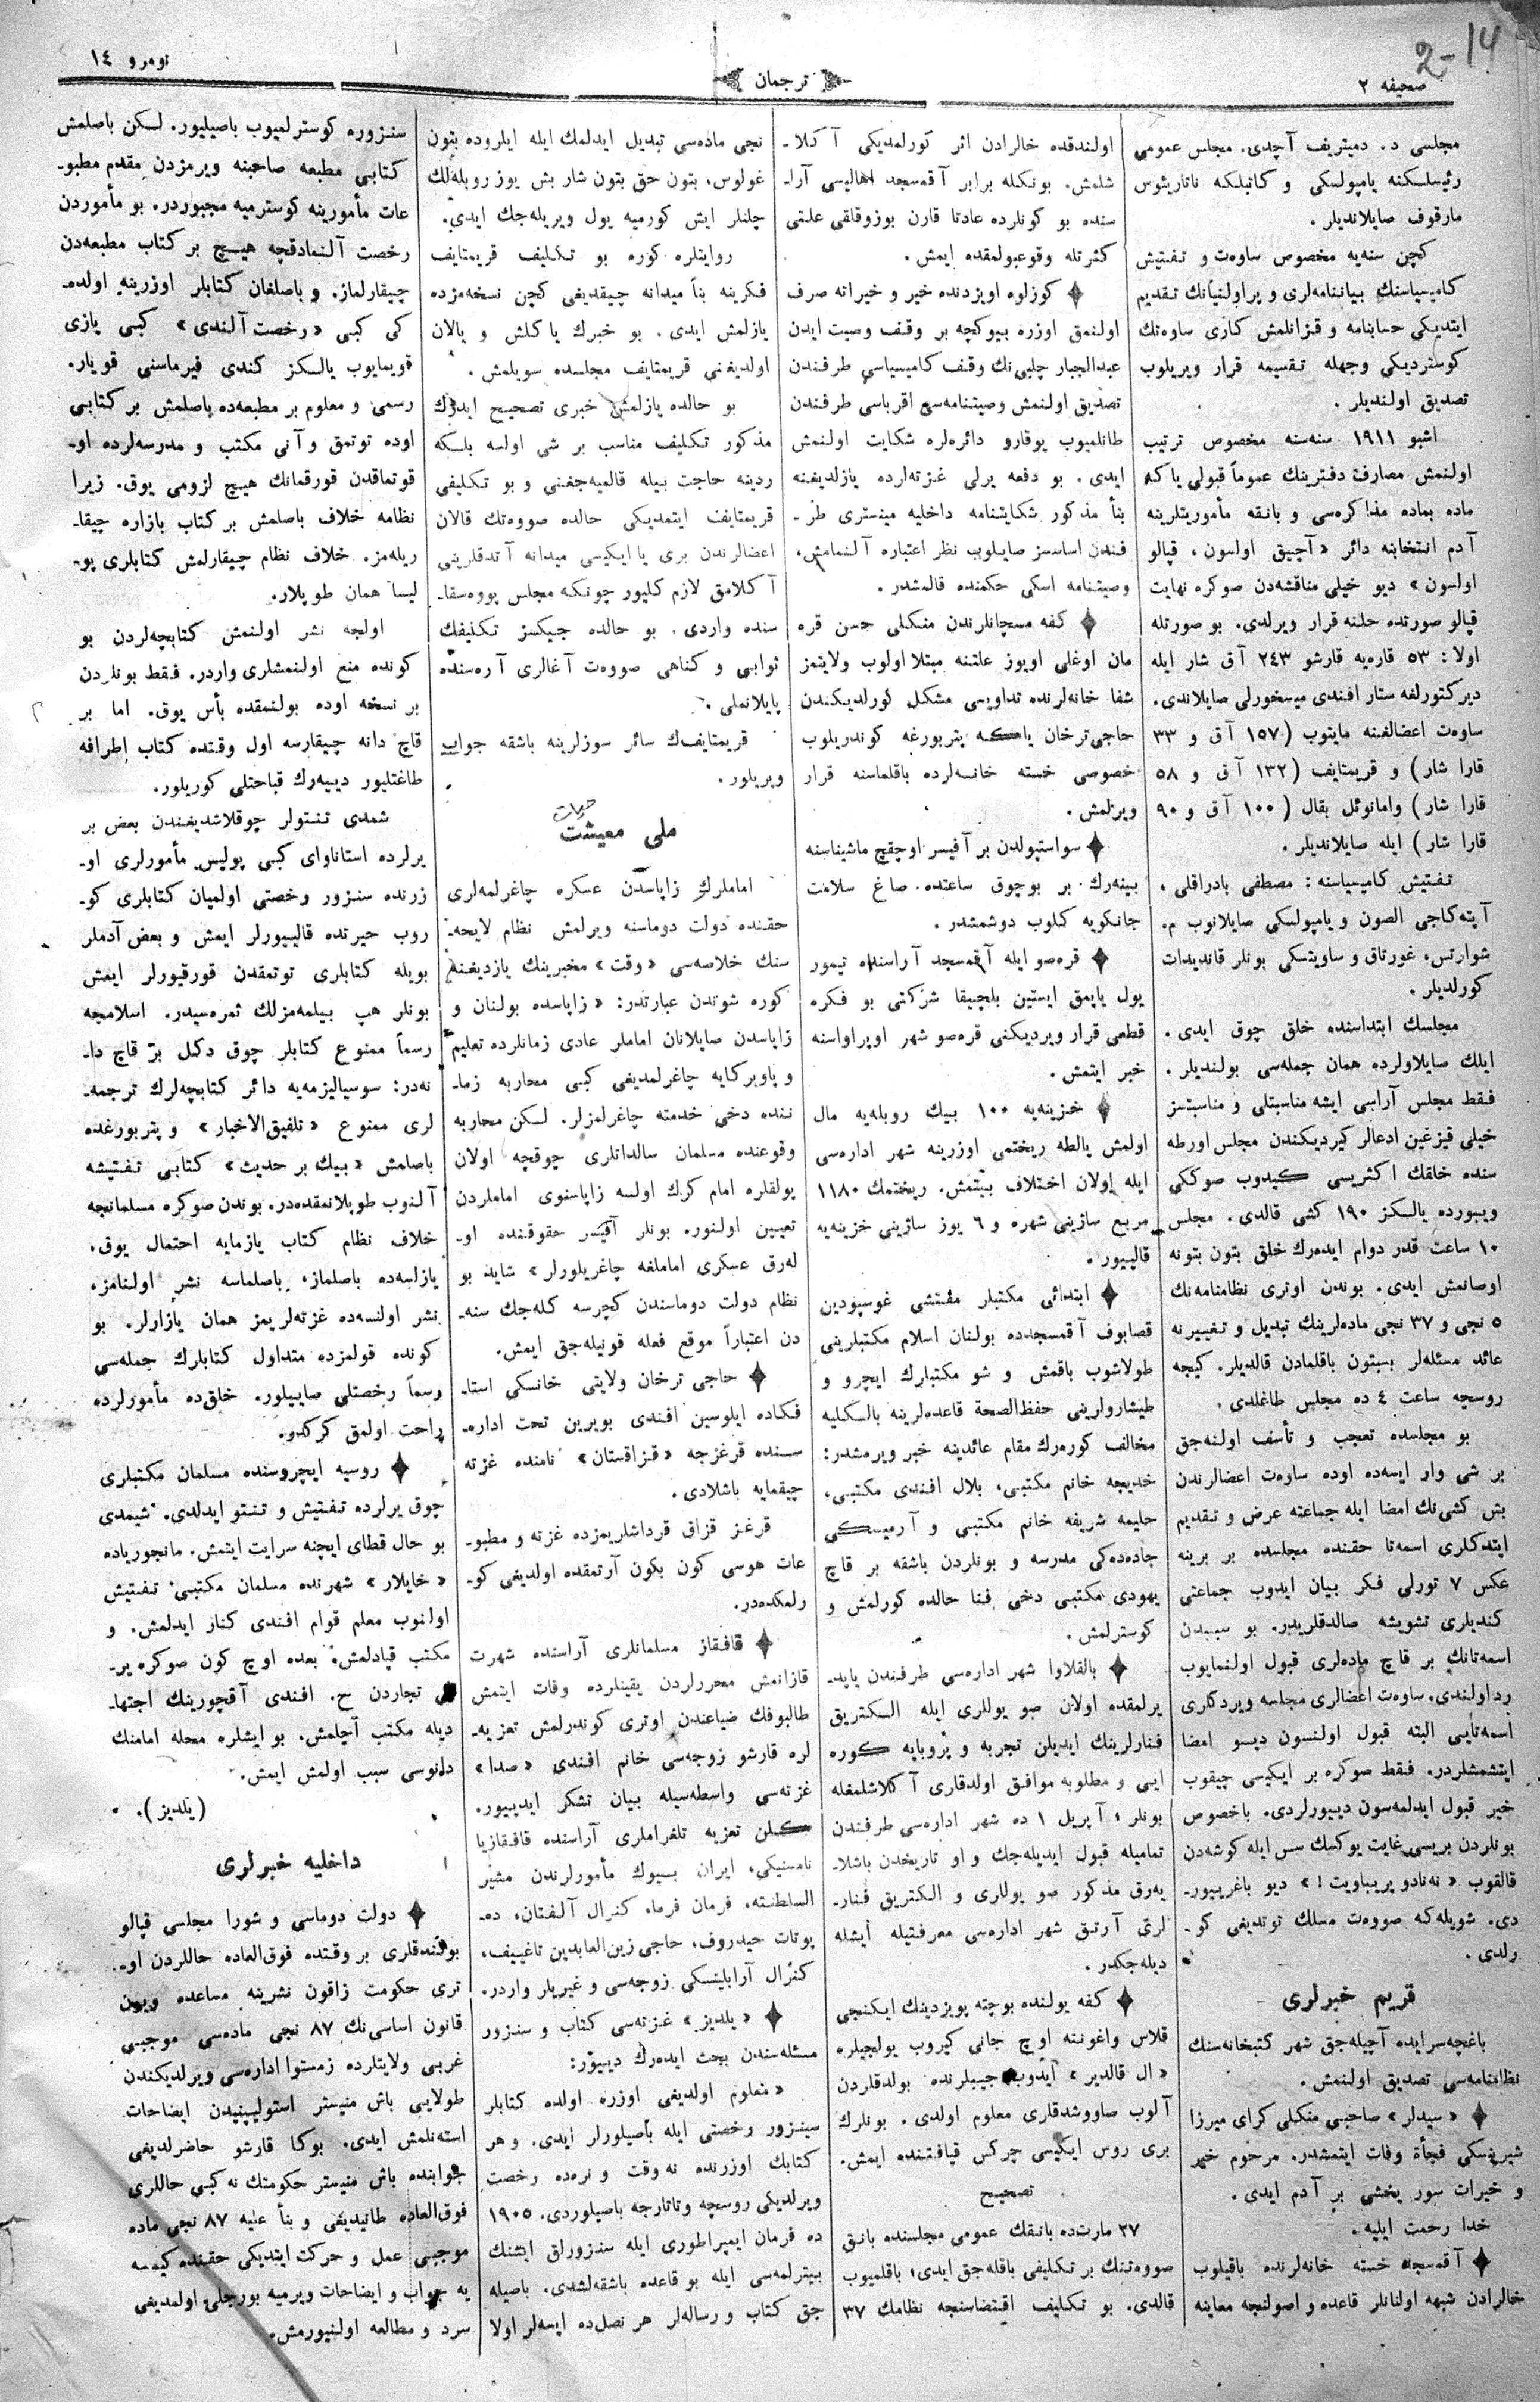 صحیفه ٢
ترجمان
نومرو ١٤
2-14
مجلسی د. دمیتریف آچدی. مجلس عمومی
رئیسلکنه یامپولسکی و کاتبلکه ناتاریئوس
مارقوف صایلاندیلر.
کچن سنه‌یه مخصوص ساوه‌ت و تفتیش
کامیسیاسنك بیاننامه‌لری و پراولنیانك تقدیم
ایتدیکی حسابنامه و قزانلمش کاری ساوه‌تك
کوستردیکی وجهله تقسیمه قرار ویریلوب
تصدیق اولندیلر.
اشبو ١٩١١ سنه‌سنه مخصوص ترتیب
اولنمش مصارف دفترینك عموماً قبولی یاکه
ماده بماده مذاکره‌سی و بانقه مأموریتلرینه
آدم انتخابنه دائر «آچیق اولسون، قپالو
اولسون» دیو خیلی مناقشه‌دن صوکره نهایت
قپالو صورتده حلنه قرار ویرلدی. بو صورتله
اولا: ٥٣ قاره‌یه قارشو ٢٤٣ آق شار ایله
دیرکتورلغه ستار افندی میسخورلی صایلاندی.
ساوه‌ت اعضالغنه مایتوب (١٥٧ آق و ٣٣
قارا شار) و قریمتایف (١٣٢ آق و ٥٨
قارا شار) وامانوئل بقال (١٠٠ آق و ٩٠
قارا شار) ایله صایلاندیلر.
تفتیش کامیسیاسنه: مصطفی بادراقلی،
آپته‌کاجی الصون و یامپولسکی صایلانوب م.
شوارتس، غورتاق و ساویتسکی بونلر قاندیدات
کورلدیلر.
مجلسك ابتداسنده خلق چوق ایدی.
ایلك صایلاولرده همان جمله‌سی بولندیلر.
فقط مجلس آراسی ایشه مناسبتلی و مناسبتسز
خیلی قیزغین ادعالر کیردیکندن مجلس اورطه
سنده خلقك اکثریسی کیدوب صوککی
ویبورده یالکز ١٩٠ کشی قالدی. مجلس
١٠ ساعت قدر دوام ایده‌رك خلق بتون بتونه
اوصانمش ایدی. بوندن اوتری نظامنامه‌نك
٥ نجی و ٣٧ نجی ماده‌لرینك تبدیل و تغییرنه
عائد مسئله‌لر بسبتون باقلمادن قالدیلر. کیجه
روسچه ساعت ٤ ده مجلس طاغلدی.
بو مجلسده تعجب و تأسف اولنه‌جق
بر شی وار ایسه‌ده اوده ساوه‌ت اعضالرندن
بش کشی‌نك امضا ایله جماعته عرض و تقدیم
ایتدکلری اسمه‌تا حقنده مجلسده بر برینه
عکس ٧ تورلی فکر بیان ایدوب جماعتی
کندیلری تشویشه صالدقلریدر. بو سببدن
اسمه‌تانك بر قاچ ماده‌لری قبول اولنمایوب
رد اولندی. ساوه‌ت اعضالری مجلسه ویردکلری
اسمه‌تایی البته قبول اولنسون دیو امضا
ایتشمشلردر. فقط صوکره بر ایکیسی چیقوب
خیر قبول ایدلمه‌سون دییورلردی. باخصوص
بونلردن بریسی غایت یوکسك سس ایله کوشه‌دن
قالقوب «نه‌نادو پریباویت!» دیو باغرییور‌ـ
دی. شویله‌که صووه‌ت مسلك توتدیغی کو‌ـ
رلدی.
قریم خبرلری
باغچه‌سرایده آچیله‌جق شهر کتبخانه‌سنك
نظامنامه‌سی تصدیق اولنمش.
«سیدلر» صاحبی منکلی کرای میرزا
شیرینسکی فجأة وفات ایتمشدر. مرحوم خیر
و خیرات سور یخشی بر آدم ایدی.
خدا رحمت ایلیه.
آقمسجد خسته خانه‌لرنده باقیلوب
خالرادن شبهه اولنانلر قاعده و اصولنجه معاینه
اولندقده خالرادن اثر کورلمدیکی آکلا‌ـ
شلمش. بونکله برابر آقمسجد اهالیسی آرا‌ـ
سنده بو کونلرده عادتا قارن بوزوقلقی علتی
کثرتله وقوعبولمقده ایمش.
کوزلوه اویزدنده خیر و خیراته صرف
اولنمق اوزره بیوکچه بر وقف وصیت ایدن
عبدالجبار چلبی‌نك وقف کامیسیاسی طرفندن
تصدیق اولنمش وصیتنامه‌سی اقرباسی طرفندن
طانلمیوب یوقارو دائره‌لره شکایت اولنمش
ایدی. بو دفعه یرلی غزته‌لرده یازلدیغنه
بنأ مذکور شکایتنامه داخلیه مینستری طر‌ـ
فندن اساسسز صایلوب نظر اعتباره آلنمامش،
وصیتنامه اسکی حکمنده قالمشدر.
کفه مسچانلرندن منکلی حسن قره
مان اوغلی اویوز علتنه مبتلا اولوب ولایتمز
شفا خانه‌لرنده تداویسی مشکل کورلدیکندن
حاجی‌ترخان یاکه پتربورغه کوندریلوب
خصوصی خسته خانه‌لرده باقلماسنه قرار
ویرلمش.
سواستپولدن بر آفیسر اوچقچ ماشیناسنه
بینه‌رك بر بوچوق ساعتده صاغ سلامت
جانکویه کلوب دوشمشدر.
قره‌صو ایله آقمسجد آراسنده تیمور
یول یاپمق ایستین بلچیقا شرکتی بو فکره
قطعی قرار ویردیکنی قره‌صو شهر اوپراواسنه
خبر ایتمش.
خزینه‌یه ١٠٠ بیك روبله‌یه مال
اولمش یالطه ریختمی اوزرینه شهر اداره‌سی
ایله اولان اختلاف بیتمش. ریختمك ١١٨٠
مربع ساژینی شهره و ٦ یوز ساژینی خزینه‌یه
قالییور.
ابتدائی مکتبلر مفتشی غوسپودین
قصابوف آقمسجدده بولنان اسلام مکتبلرینی
طولاشوب باقمش و شو مکتبلرك ایچرو و
طیشارولرینی حفظ‌الصحة قاعده‌لرینه بالکلیه
مخالف کوره‌رك مقام عائدینه خبر ویرمشدر:
خدیجه خانم مکتبی، بلال افندی مکتبی،
حلیمه شریفه خانم مکتبی و آرمیسکی
جاده‌ده‌کی مدرسه و بونلردن باشقه بر قاچ
یهودی مکتبی دخی فنا حالده کورلمش و
کوسترلمش.
بالقلاوا شهر اداره‌سی طرفندن یاپد‌ـ
یرلمقده اولان صو یوللری ایله الکتریق
فنارلرینك ایدیلن تجربه و پروبایه کوره
ایی و مطلوبه موافق اولدقاری آکلاشلمغله
بونلر، آپریل ١ ده شهر اداره‌سی طرفندن
تمامیله قبول ایدیله‌جك و او تاریخدن باشلا‌ـ
یه‌رق مذکور صو یوللاری و الکتریق فنار‌ـ
لری آرتق شهر اداره‌سی معرفتیله ایشله
دیله‌جکدر.
کفه یولنده بوچته پویزدینك ایکنجی
قلاس واغوننه اوچ جانی کیروب یولجیلره
«ال قالدیر» ایدوب جیبلرنده بولدقلردن
آلوب صاووشدقلری معلوم اولدی. بونلرك
بری روس ایکیسی چرکس قیافتنده ایمش.
تصحیح
٢٧ مارت‌ده بانقك عمومی مجلسنده بانق
صووه‌تنك بر تکلیفی باقله‌جق ایدی، باقلمیوب
قالدی. بو تکلیف اقتضاسنجه نظامك ٣٧
نجی ماده‌سی تبدیل ایدلمك ایله ایلروده بتون
غولوس، بتون حق بتون شار بش یوز روبله‌لك
چلنلر ایش کورمیه یول ویریله‌جك ایدی.
روایتلره کوره بو تکلیف قریمتایف
فکرینه بنأ میدانه چیقدیغی کچن نسخه‌مزده
یازلمش ایدی. بو خبرك یاکلش و یالان
اولدیغنی قریمتایف مجلسده سویلمش.
بو حالده یازلمش خبری تصحیح ایده‌رك
مذکور تکلیف مناسب بر شی اولسه بلکه
ردینه حاجت بیله قالمیه‌جغنی و بو تکلیفی
قریمتایف ایتمدیکی حالده صووه‌تك قالان
اعضالرندن بری یا ایکیسی میدانه آتدقلرینی
آکلامق لازم کلیور چونکه مجلس پووه‌سقا‌ـ
سنده واردی. بو حالده جیکسز تکلیفك
ثوابی و کناهی صووه‌ت آغالری آره‌سنده
پایلانملی.
قریمتایف‌ك سائر سوزلرینه باشقه جواب
ویریلور.
حیات
ملی معیشت
اماملرك زاپاسدن عسکره چاغرلمه‌لری
حقنده دولت دوماسنه ویرلمش نظام لایحه‌ـ
سنك خلاصه‌سی «وقت» مخبرینك یازدیغنه
کوره شوندن عبارتدر: «زاپاسده بولنان و
زاپاسدن صایلانان اماملر عادی زمانلرده تعلیم
و پاویرکایه چاغرلمدیغی کبی محاربه زما‌ـ
ننده دخی خدمته چاغرلمزلر. لکن محاربه
وقوعنده مسلمان سالداتلری چوقچه اولان
پولقلره امام کرك اولسه زاپاسنوی اماملردن
تعیین اولنور. بونلر آفیسر حقوقنده او‌ـ
له‌رق عسکری امامالغه چاغریلورلر» شاید بو
نظام دولت دوماسندن کچرسه کله‌جك سنه‌ـ
دن اعتباراً موقع فعله قونیله‌جق ایمش.
حاجی ترخان ولایتی خانسکی استا‌ـ
فکاده ایلوسین افندی بویرین تحت اداره‌ـ
سنده قرغزجه «قزاقستان» نامنده غزته
چیقمایه باشلادی.
قرغز قزاق قرداشلریمزده غزته و مطبو‌ـ
عات هوسی کون بکون آرتمقده اولدیغی کو‌ـ
رلمکده‌در.
قافقاز مسلمانلری آراسنده شهرت
قازانمش محررلردن یقینلرده وفات ایتمش
طالبوفك ضیاعندن اوتری کوندرلمش تعزیه‌ـ
لره قارشو زوجه‌سی خانم افندی «صدا»
غزته‌سی واسطه‌سیله بیان تشکر ایدییور.
کلن تعزیه تلغراملری آراسنده قافقازیا
نامسنیکی، ایران بیوك مأمورلرندن مشیر
السلطنه، فرمان فرما، کنرال آلفتان، ده‌ـ
پوتات حیدروف، حاجی زین‌العابدین تاغییف،
کنرال آرابلینسکی زوجه‌سی و غیریلر واردر.
«یلدیز» غزته‌سی کتاب و سنزور
مسئله‌سندن بحث ایده‌رك دییور:
«معلوم اولدیغی اوزره اولده کتابلر
سینزور رخصتی ایله باصیلورلر ایدی. و هر
کتابك اوزرنده نه وقت و نره‌ده رخصت
ویرلدیکی روسچه وتاتارجه باصیلوردی. ١٩٠٥
ده فرمان ایمپراطوری ایله سنزورلق ایشنك
بیترلمه‌سی ایله بو قاعده باشقه‌لشدی. باصیله
جق کتاب و رساله‌لر هر نصل‌ده ایسه‌لر اولا
سنزوره کوسترلمیوب باصیلیور. لکن باصلمش
کتابی مطبعه صاحبنه ویرمزدن مقدم مطبو‌ـ
عات مأمورینه کوسترمیه مجبوردر. بو مأموردن
رخصت آلنمادقچه هیچ بر کتاب مطبعه‌دن
چیقارلماز. و باصلغان کتابلر اوزرینه اولده‌ـ
کی کبی «رخصت آلندی» کبی یازی
قویمایوب یالکز کندی فیرماسنی قویار.
رسمی و معلوم بر مطبعه‌ده باصلمش بر کتابی
اوده توتمق و آنی مکتب و مدرسه‌لرده او‌ـ
قوتماقدن قورقمانك هیچ لزومی یوق. زیرا
نظامه خلاف باصلمش بر کتاب بازاره چیقا‌ـ
ریله‌مز. خلاف نظام چیقارلمش کتابلری پو‌ـ
لیسا همان طوپلار.
اولجه نشر اولنمش کتابچه‌لردن بو
کونده منع اولنمشلری واردر. فقط بونلردن
بر نسخه اوده بولنمقده بأس یوق. اما بر
قاچ دانه چیقارسه اول وقتده کتاب اطرافه
طاغتلیور دییه‌رك قباحتلی کوریلور.
شمدی تنتولر چوقلاشدیغندن بعض بر
یرلرده استاناوای کبی پولیس مأمورلری او‌ـ
زرنده سنزور رخصتی اولمیان کتابلری کو‌ـ
روب حیرتده قالییورلر ایمش و بعض آدملر
بویله کتابلری توتمقدن قورقیورلر ایمش
بونلر هپ بیلمه‌مزلك ثمره‌سیدر. اسلامجه
رسماً ممنوع کتابلر چوق دکل بر قاچ دا‌ـ
نه‌در: سوسیالیزمه‌یه دائر کتابچه‌لرك ترجمه‌ـ
لری ممنوع «تلفیق‌الاخبار» و پتربورغده
باصلمش «بیك بر حدیث» کتابی تفتیشه
آلنوب طوپلانمقده‌در. بوندن صوکره مسلمانجه
خلاف نظام کتاب یازمایه احتمال یوق.
یازلسه‌ده باصلماز، باصلماسه نشر اولنامز،
نشر اولنسه‌ده غزته‌لریمز همان یازارلر. بو
کونده قولمزده متداول کتابلرك جمله‌سی
رسماً رخصتلی صاییلور. خلق‌ده مأمورلرده
راحت اولمق کرکدو.
روسیه ایچروسنده مسلمان مکتبلری
چوق یرلرده تفتیش و تنتو ایدلدی. شیمدی
بو حال قطای ایچنه سرایت ایتمش. مانجوریاده
«خایلار» شهرنده مسلمان مکتبی تفتیش
اولنوب معلم قوام افندی کنار ایدلمش. و
مکتب قپادلمش. بعده اوچ کون صوکره یر‌ـ
لی تجاردن ح. افندی آقچورینك اجتها‌ـ
دیله مکتب آچلمش. بو ایشلره محله امامنك
دانوسی سبب اولمش ایمش.
(یلدیز).
داخلیه خبرلری
دولت دوماسی و شورا مجلسی قپالو
بولندقلری بر وقتده فوق‌العاده حاللردن او‌ـ
تری حکومت زاقون نشرینه مساعده ویرن
قانون اساسی‌نك ٨٧ نجی ماده‌سی موجبی
غربی ولایتلرده زمستوا اداره‌سی ویرلدیکندن
طولایی باش منیستر استولیپیندن ایضاحات
استه‌نلمش ایدی. بوکا قارشو حاضرلدیغی
جوابنده باش منیستر حکومتك نه کبی حاللری
فوق‌العاده طانیدیغی و بنأ علیه ٨٧ نجی ماده
موجبی عمل و حرکت ایتدیکی حقنده کیمسه
یه جواب و ایضاحات ویرمیه بورجلی اولمدیغی
سرد و مطالعه اولنیورمش.